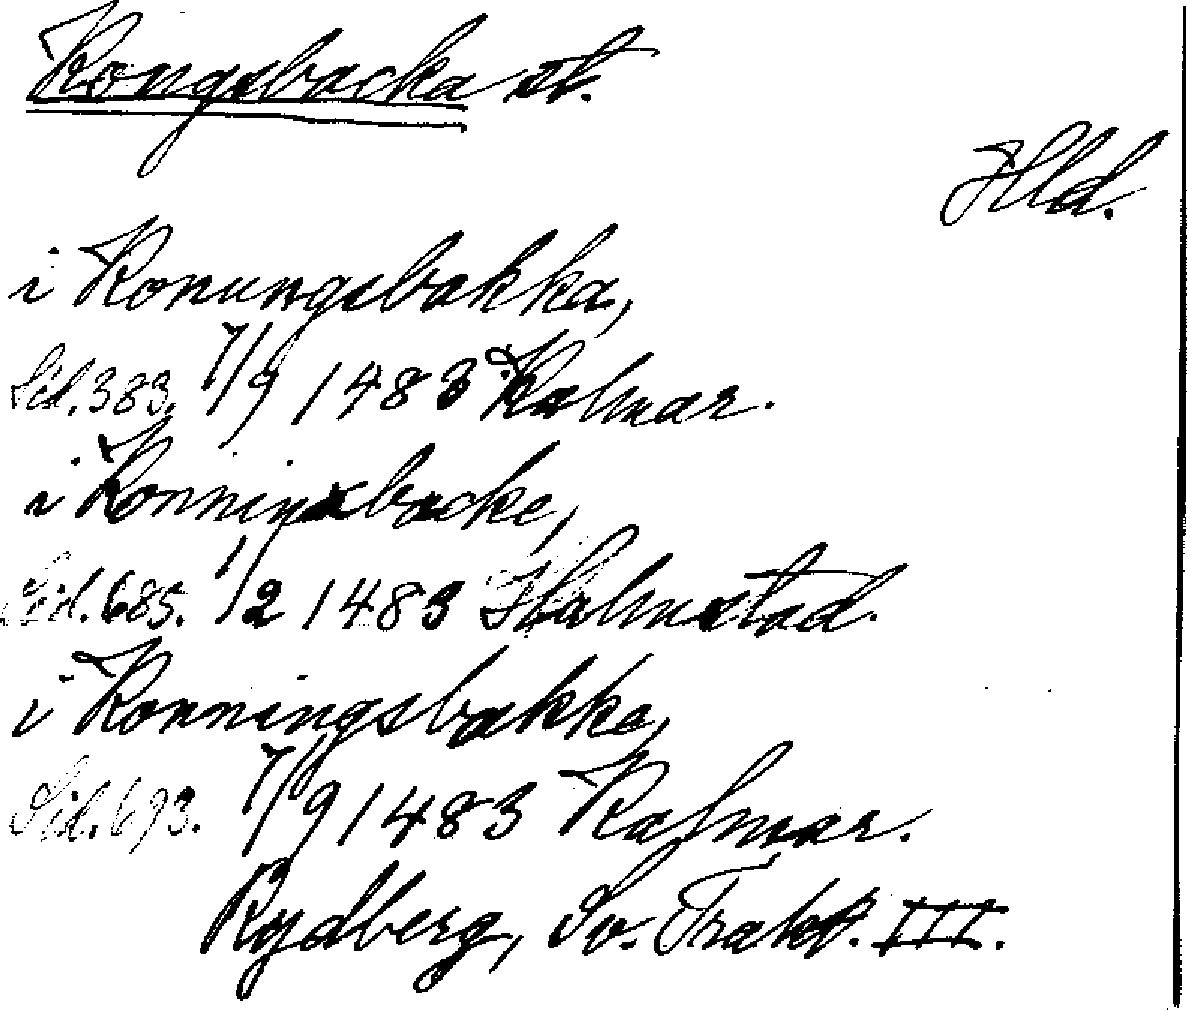 Kongsbacka st.
Hld.
i Konungsbakka,
Sid. 383. 7/9 1483 Kalmar.
i Konningxbacke,
Sid. 685. 1/2 1483 Halmstad.
i Konningsbakke,
Sid. 693. 7/9 1483 Kalmar.
Rydberg, Sv. Trakt. III.